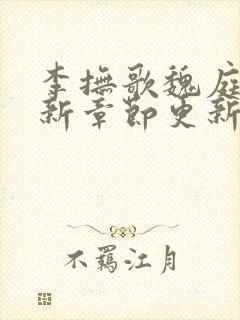 李撫歌魏庭
新章節更新
不羁江月